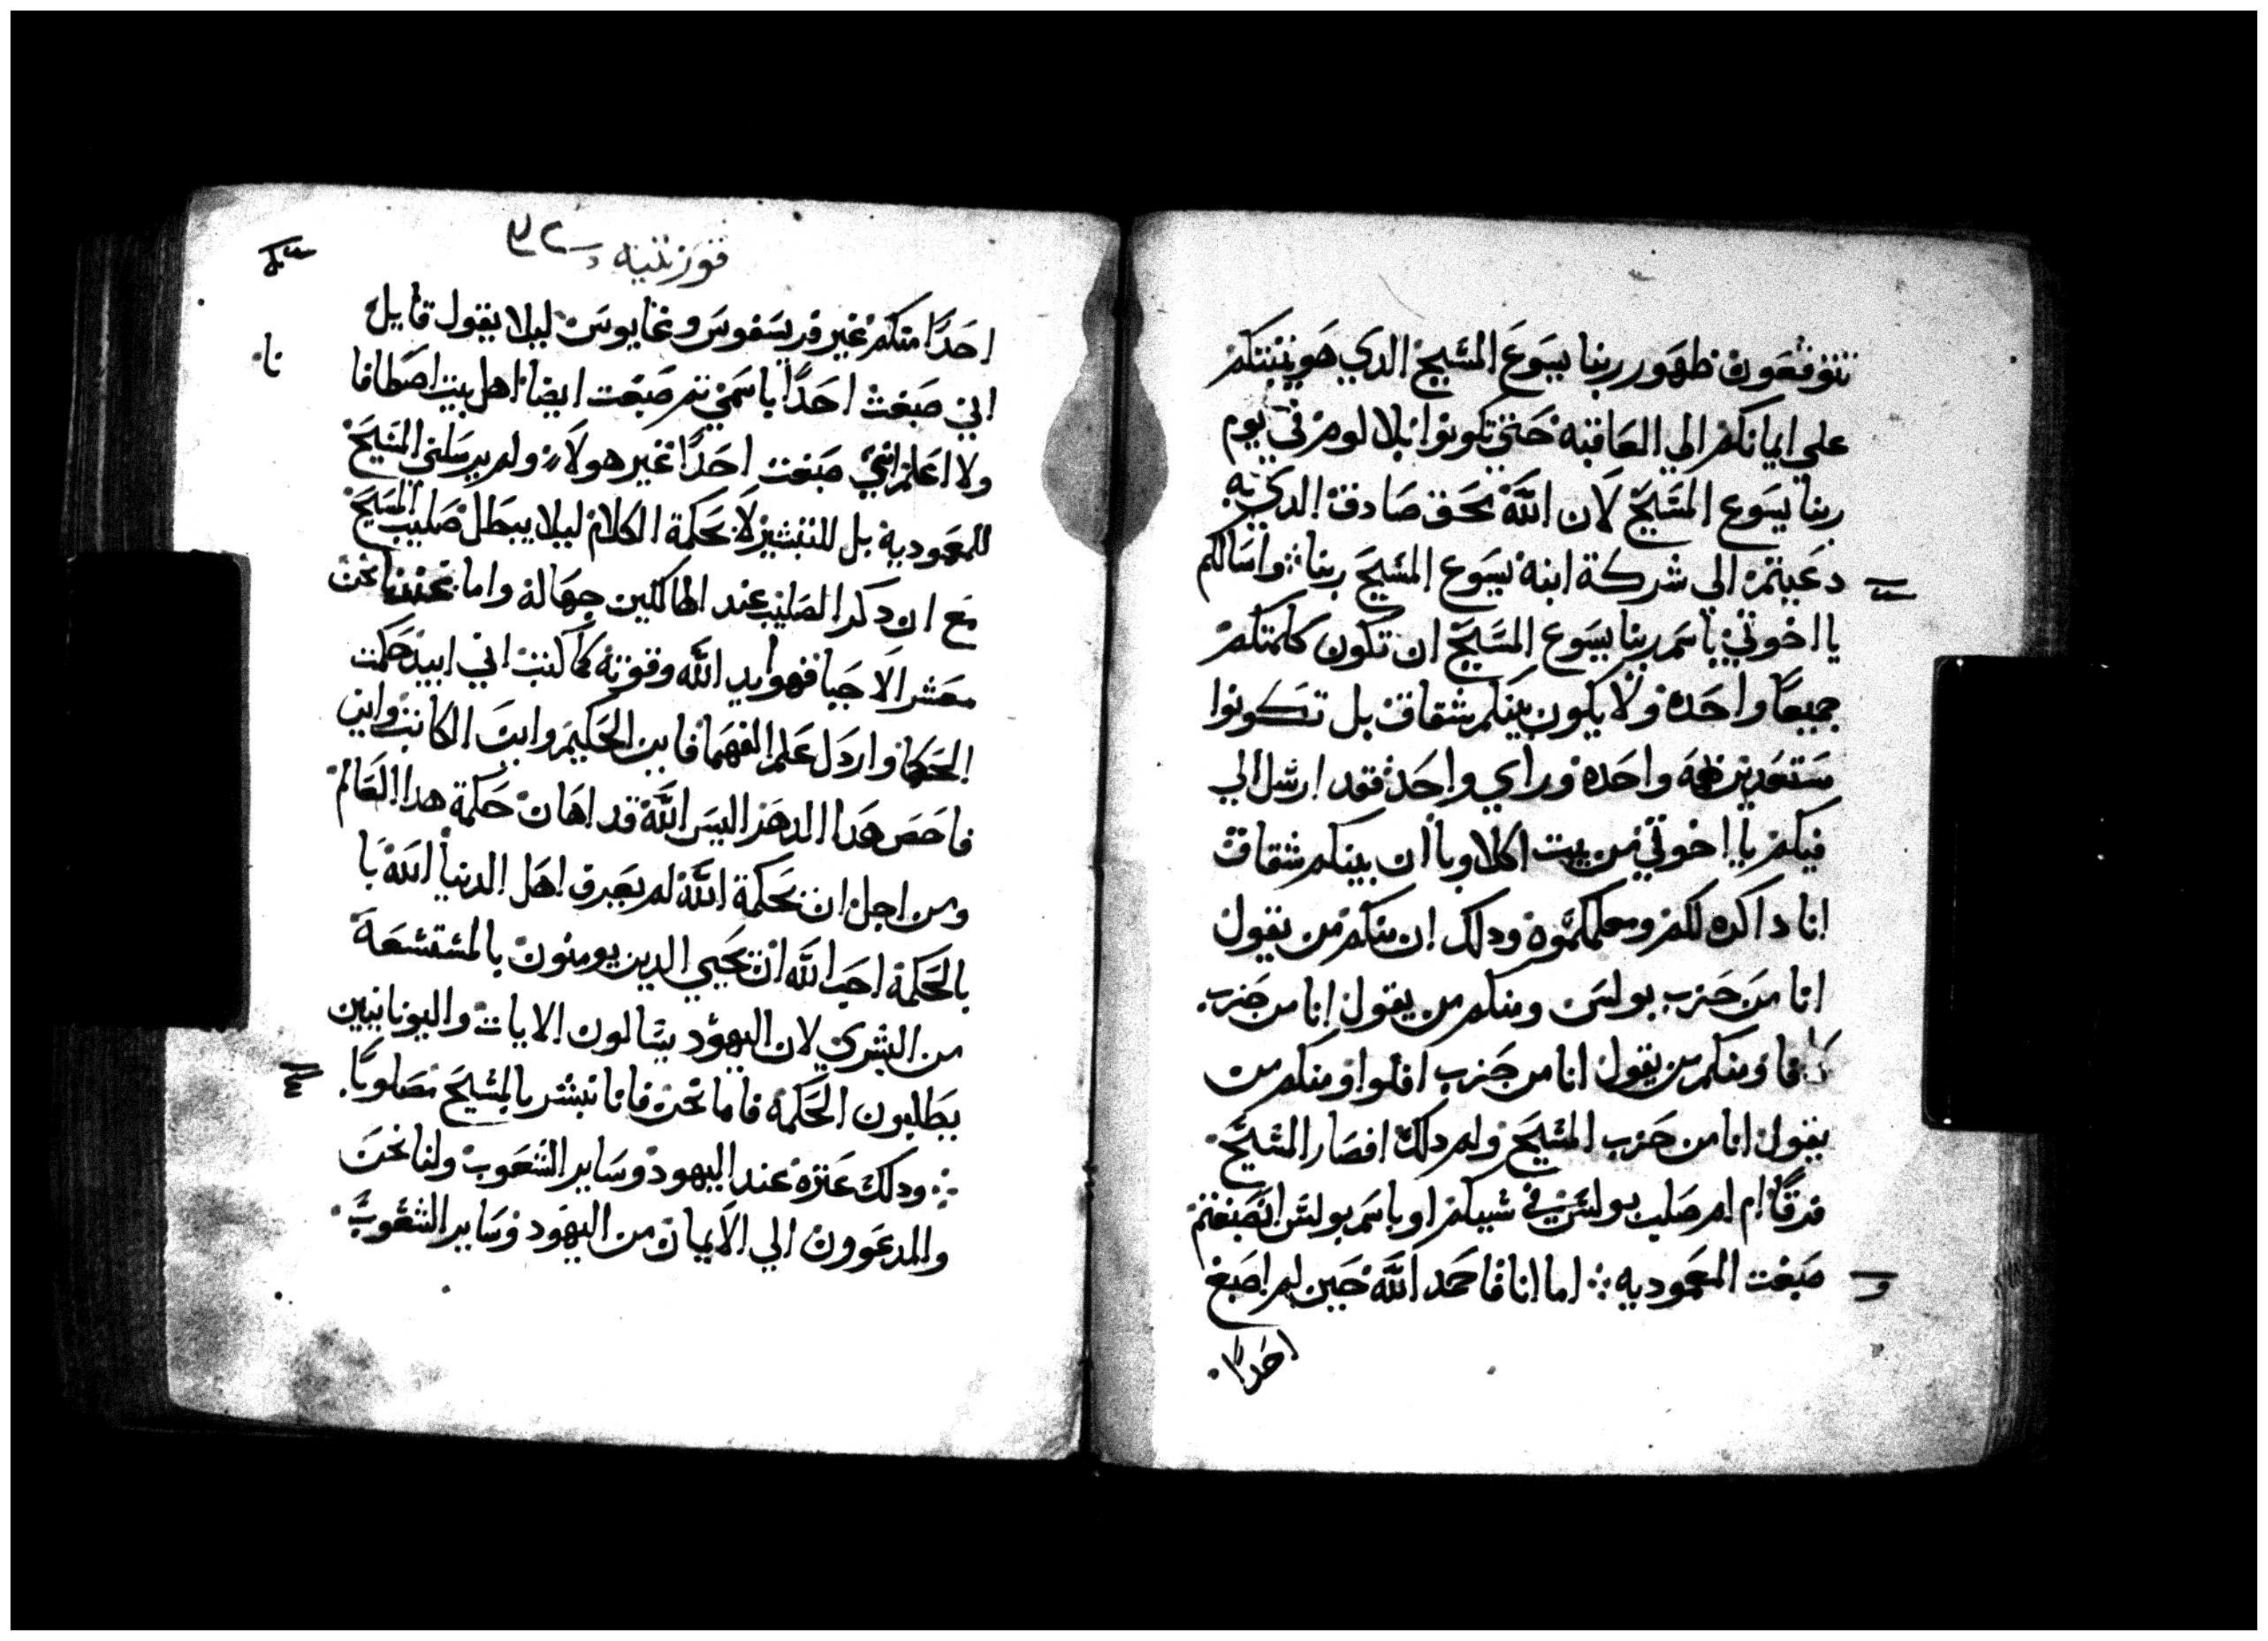 تتوقعون ظهور ربنا يسوع المسيح الدي هو يثبتكم
علي ايمانكم الي العاقبه حتي تكونوا بلا لوم في يوم
ربنا يسوع المسيح لان الله بحق صادق الدي به
دعيتم الي شركة ابنه يسوع المسيح ربنا ܀ واسالكم
يا اخوتي باسم ربنا يسوع المسيح ان تكون كلمتكم
جميعا واحده ولا يكون بينكم شقاق بل تكونوا
مستعدين واحده وراي واحد فقد ارسل الي
فيكم يا اخوتي من بيت اكلاوبا ان بينكم شقاق
انا داكره لكم ودلك ان منكم من يقول
انا من حزب بولس ومنكم من يقول انا من حزب
كافا ومنكم من يقول انا من حزب افلوا ومنكم من
يقول انا من حزب المسيح ولم دلك افصار المسيح
فرقا ام لم صلب بولس في سبيكم او باسم بولس انصبغتم
صبغت المعموديه ܀ اما انا فاحمد الله حين لم اصبغ
احدا
قورنتيه
احدا منكم غير قريسفوس وغايوس ليلا يقول قايل
اني صبغت احدا باسمي ثم صبغت ايضا اهل بيت اصطافا
نا
ولا اعلم انني صبغت احدا غير هولاء ولم يرسلني المسيح
للمعوديه بل للتبشير لا بحكمة الكلام ليلا يبطل صليب المسيح
مع ان دكر الصليب عند الهالكين جهاله واما عندنا نحن
معشر الاحيا فهو ايد الله وقوته كما كتب اني ابيد حكمت
الحكما واردل علم الفهما فاين الحكيم واين الكاتب واين
فاحص هدا الدهر اليس الله قد اهان حكمة هدا العالم
ومن اجل ان بحكمة الله لم يعرف اهل الدنيا الله با
بالحكمة احب الله ان يحيي الدين يومنون بالمستشعة
من البشري لان اليهود يسالون الايات واليونانيين
يطلبون الحكمه فاما نحن فانا نبشر بالمسيح مصلوبا
܀ ودلك عثره عند اليهود وساير الشعوب ولنا نحن
والمدعوون الي الايمان من اليهود وساير الشعوب